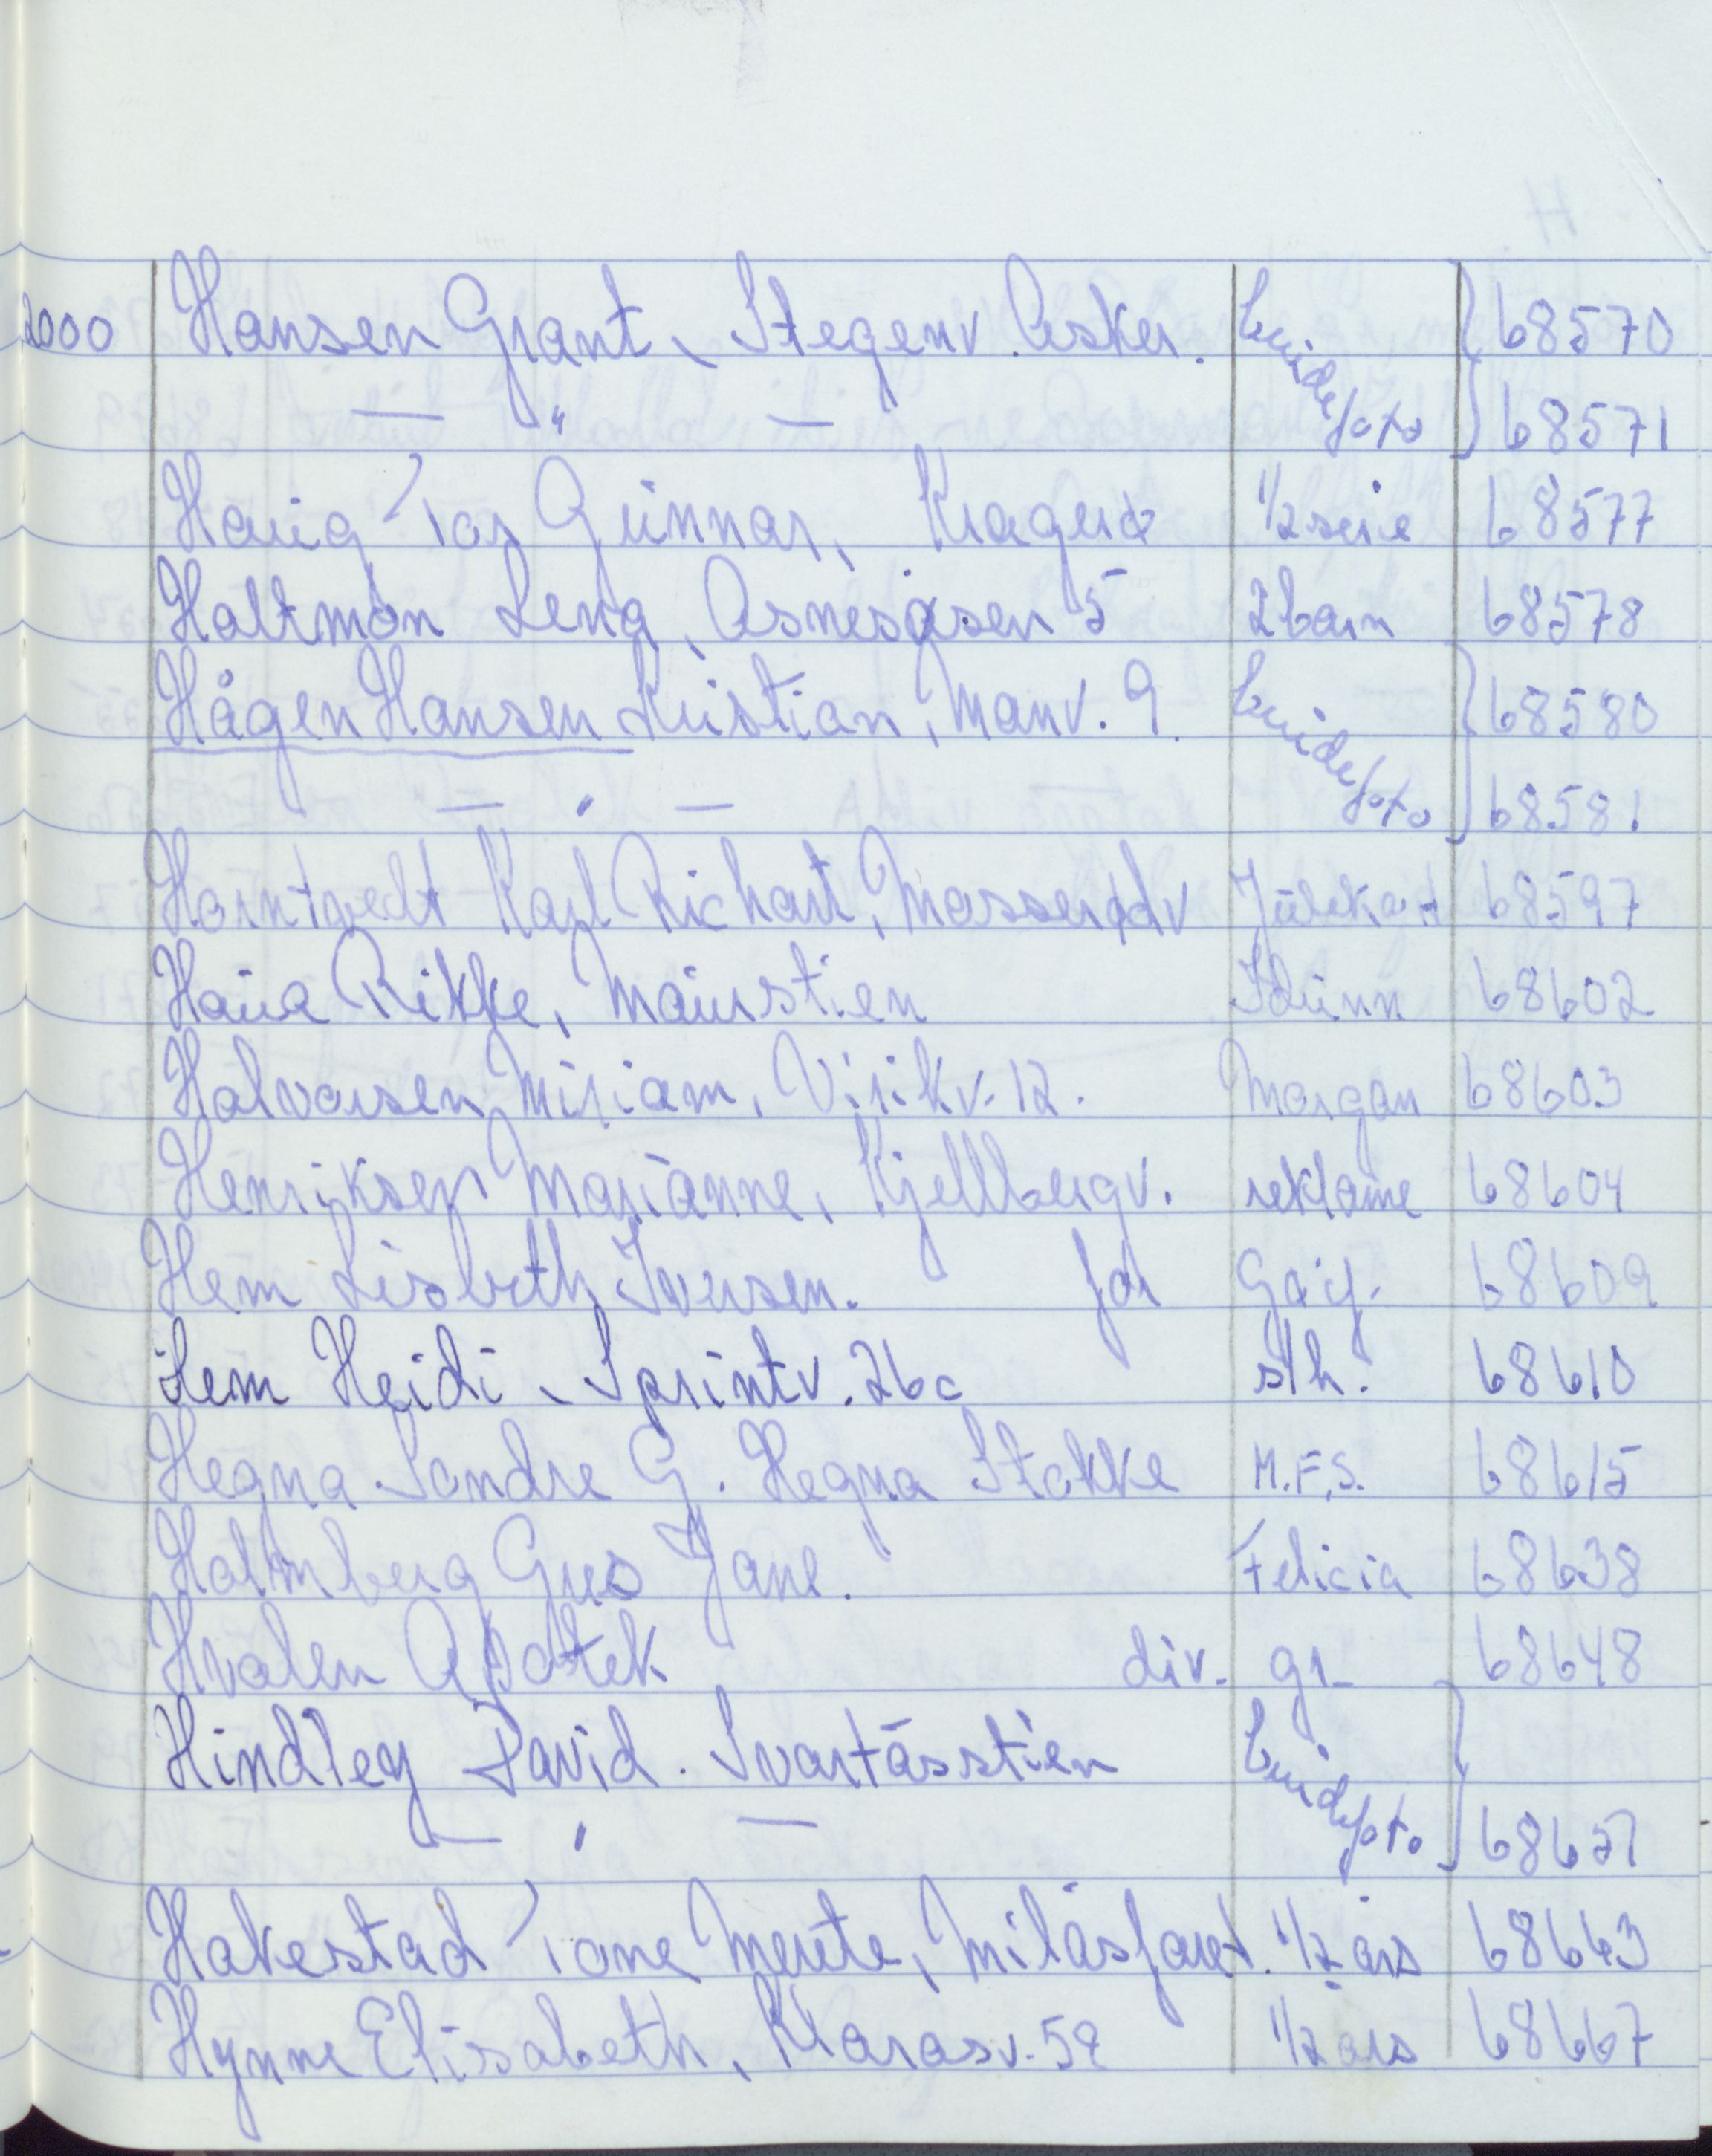 2000 Hansen Grant, Stegenv. Asker. brudefoto 68570
— " — 68571
Haug Tor Gunnar, Kragerø 1/2 serie 68577
Holtmon Lena, Åsnesåsen 5 2 barn 68578
Hågen Hansen Kristian, Manv. 9. brudefoto 68580
— " — 68581
Horntvedt Karl Richart, Mosserødv Julekort 68597
Haua Rikke, Maurstien Idunn 68602
Halvorsen Miriam, Virikv. 12. Morgan 68603
Henriksen Marianne, Kjellbergv. reklame 68604
Hem Lisbeth Iversen. for 68609
Hem Heidi, Sprintv. 26c slh. 68610
Hegna Sondre G. Hegna Stokke M.F.S. 68615
Holmberg Gus Jane. Felicia 68638
Hvalen Apotek div. gr. 68648
Hindley David. Svartåsstien brudefoto
— " — 68651
Hakestad Tone Merete, Milåsfaret. 1/2 års 68663
Hynne Elisabeth, Klarasv. 52 1/2 års 68667